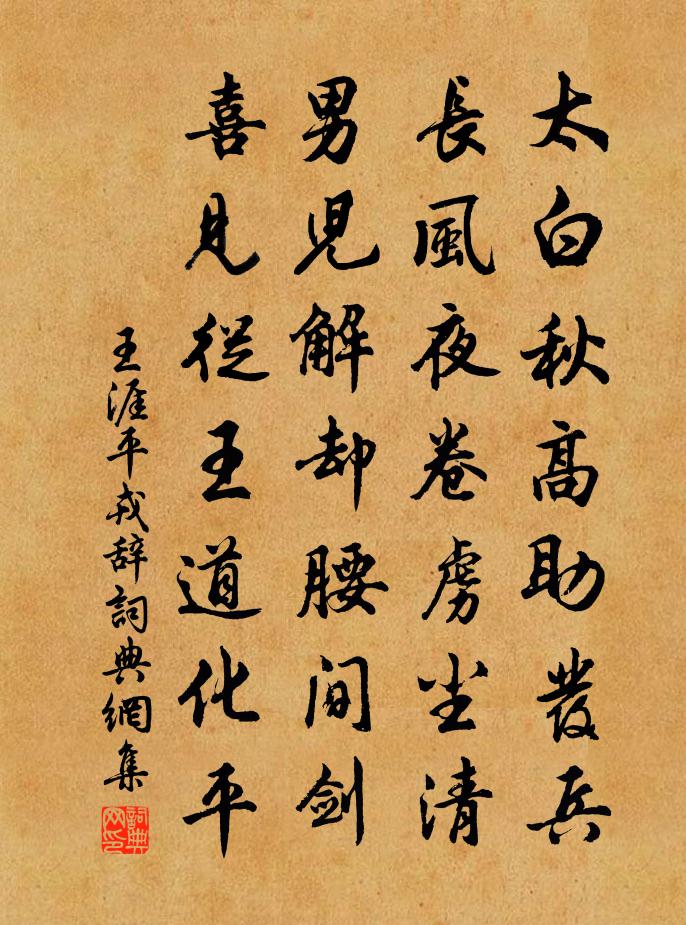 太白秋高助發兵
長風夜卷虜塵清
男児解却腰間劍
喜見從王道化平
王涯平戎辞詞典網集
詞典网印